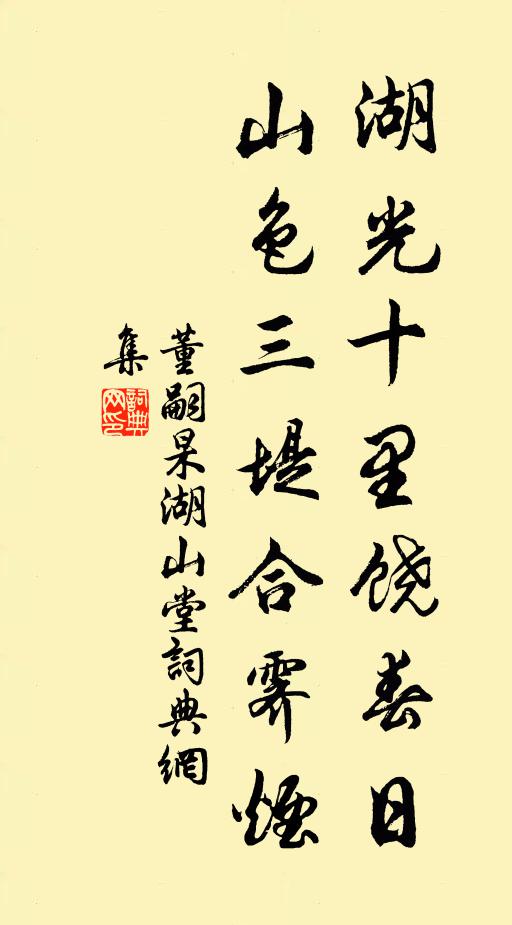 湖光十里饶春日
山色三堤合霁煙
董嗣杲湖山堂詞典網
集
詞典
网印